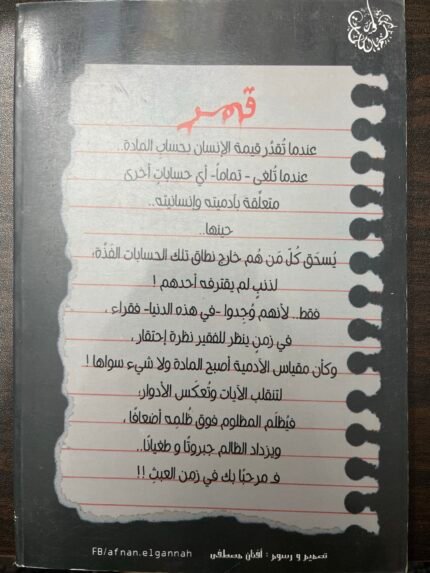 قهر
عندما تُقدَّر قيمة الإنسان بحسابِ المادة..
عندما تُلغى - تمامًا- أي حساباتٍ أخرى
متعلَّقة بآدميته وإنسانيته..
حينها..
يُسحَق كُلّ مَن هُم خارج نطاق تلك الحسابات الفَذَّة،
لذنبٍ لم يقترفه أحدهم !
فقط.. لأنهم وُجِدوا -في هذه الدنيا- فقراء ،
في زمنٍ ينظر للفقير نظرة إحتقار ،
وكأن مقياس الآدمية أصبح المادة ولا شيء سواها !
لتنقلب الآيات وتُعكَس الأدوار،
فيُظلَم المظلوم فوق ظُلمِه أضعافًا ،
ويزداد الظالم جبروتًا و طغيانًا..
فـ مرحبًا بك في زمن العبثِ !!
تصميم و رسوم : أفنان مصطفى
FB/afnan.elgannah